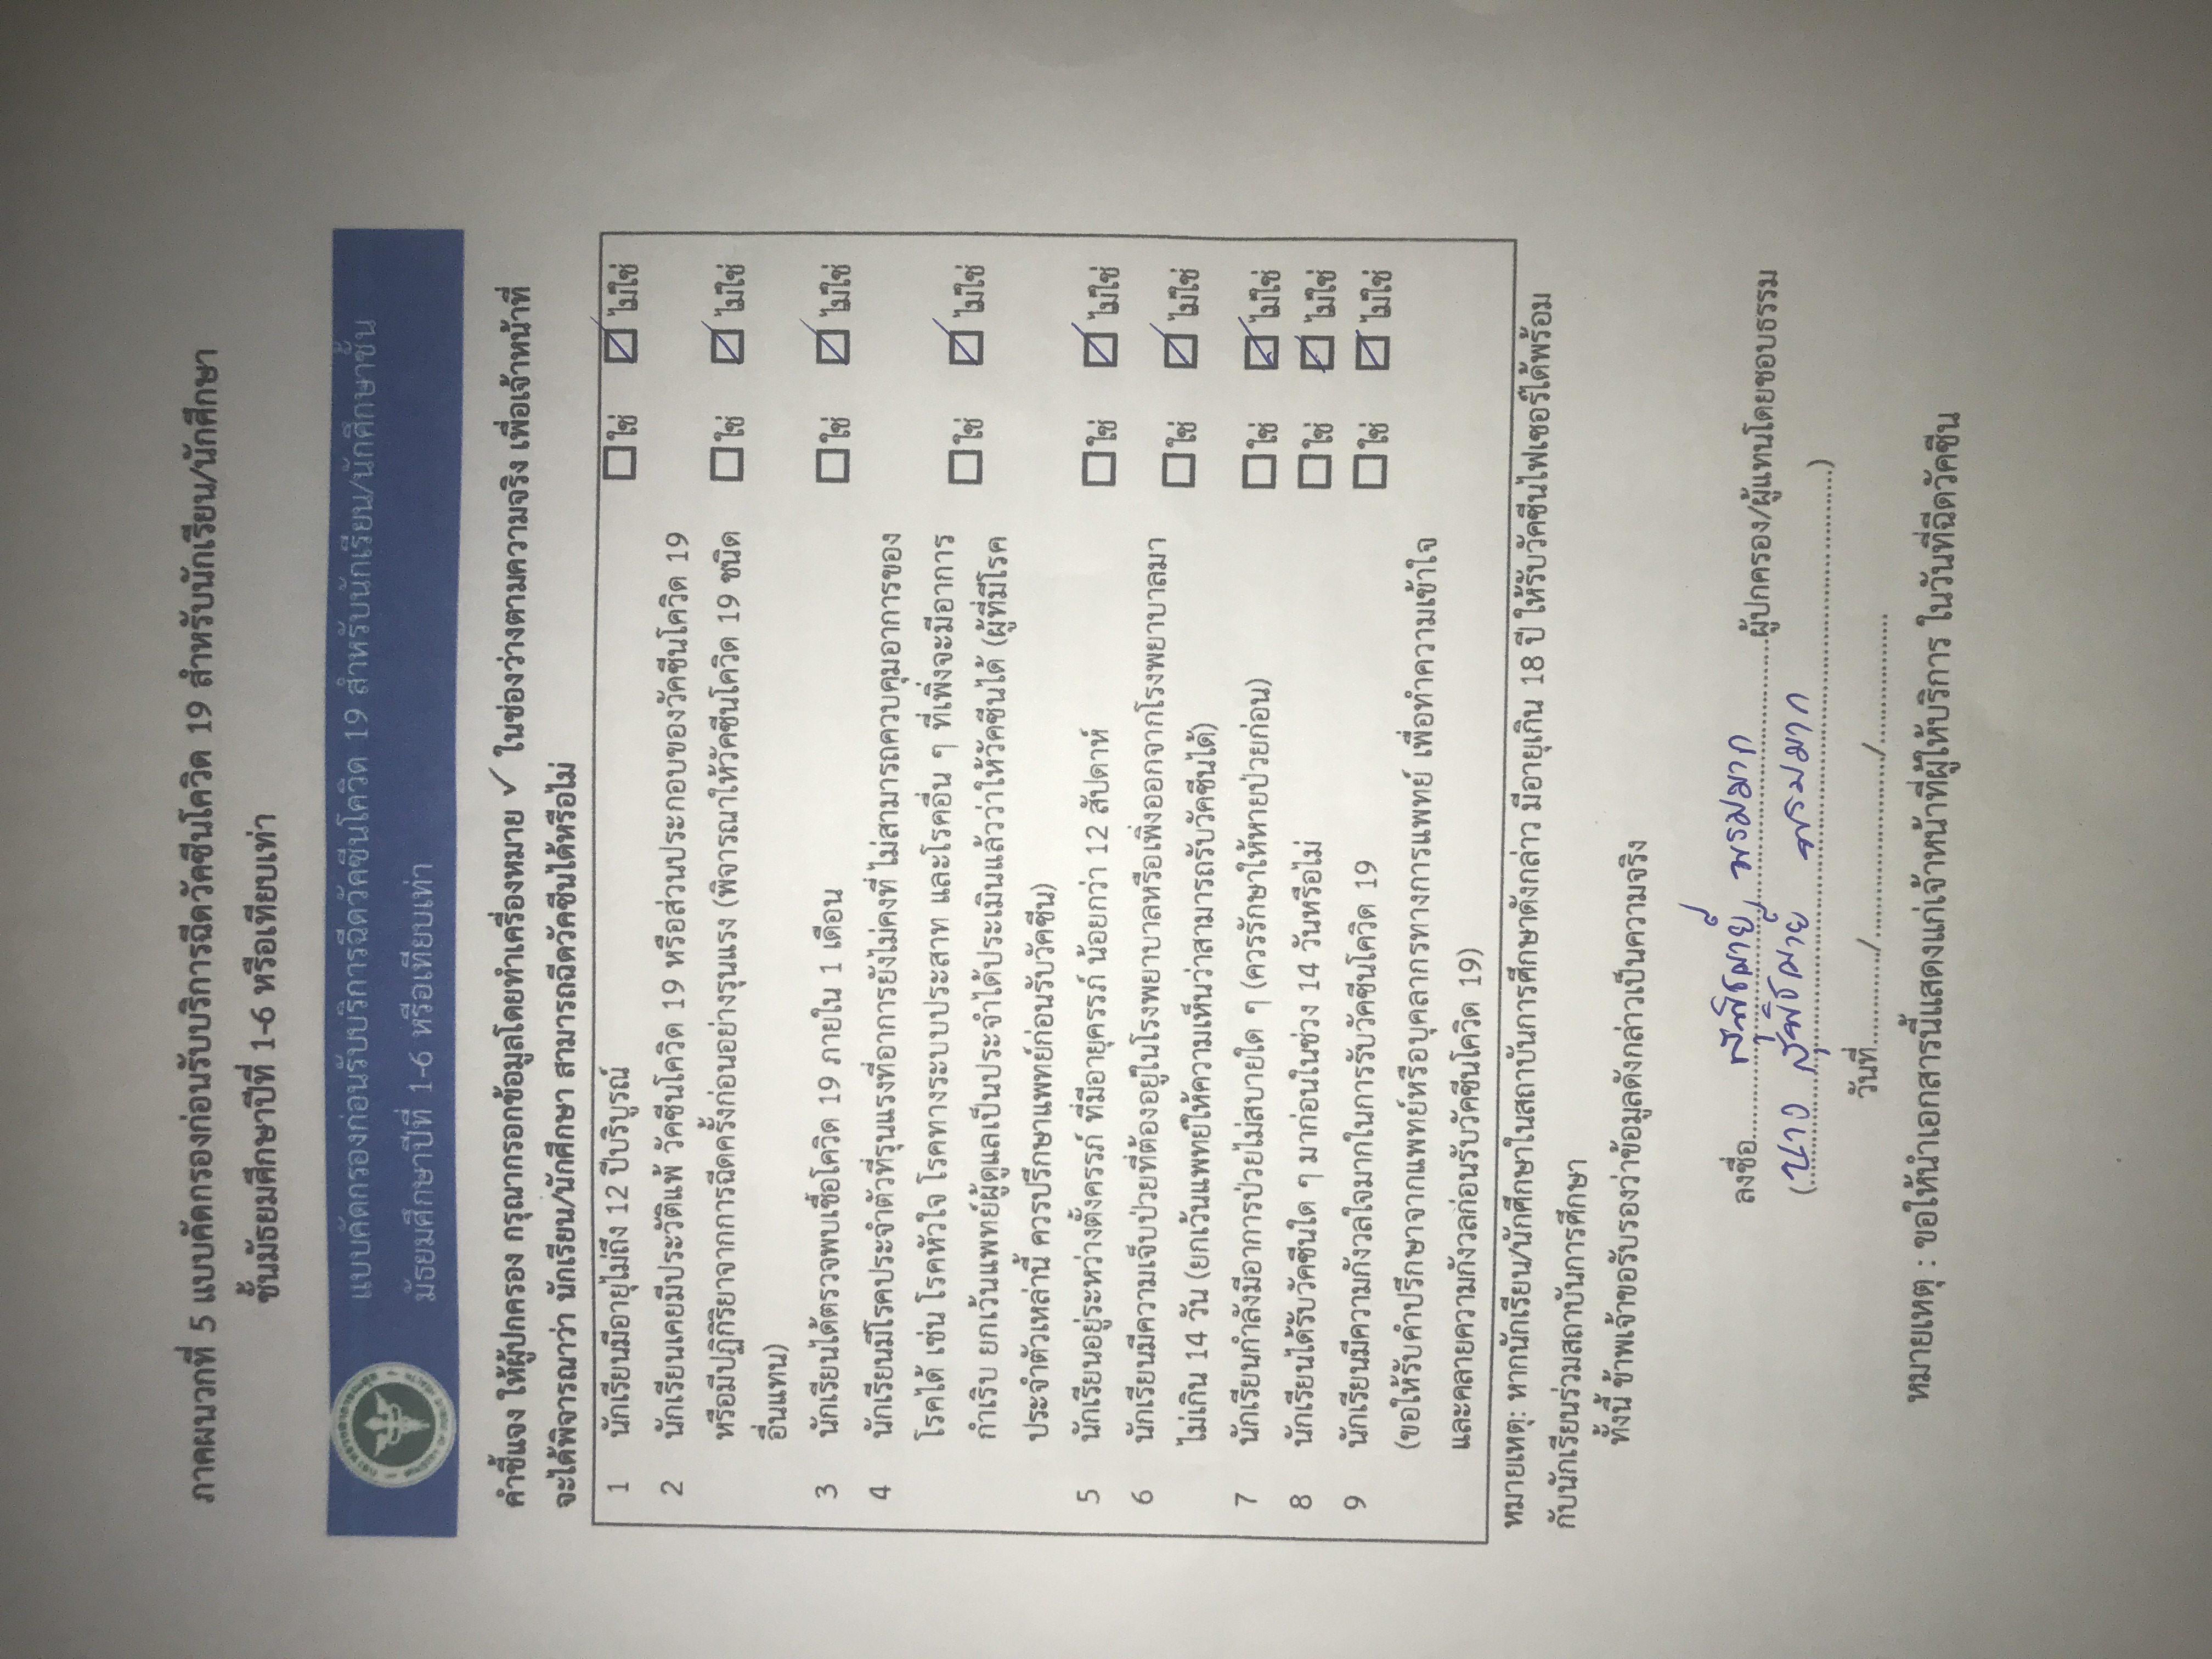 ภาคผนวกที่ 5 แบบคัดกรองก่อนรับบริการฉีดวัคซีนโควิด 19 สำหรับนักเรียน/นักศึกษา
ชั้นมัธยมศึกษาปีที่ 1-6 หรือเทียบเท่า
แบบคัดกรองก่อนรับบริการฉีดวัคซีนโควิด 19 สำหรับนักเรียน/นักศึกษาชั้น
มัธยมศึกษาปีที่ 1-6 หรือเทียบเท่า
กระทรวงสาธารณสุข
MINISTRY OF PUBLIC HEALTH
คำชี้แจง ให้ผู้ปกครอง กรุณากรอกข้อมูลโดยทำเครื่องหมาย ✓ ในช่องว่างตามความจริง เพื่อเจ้าหน้าที่
จะได้พิจารณาว่า นักเรียน/นักศึกษา สามารถฉีดวัคซีนได้หรือไม่
1 นักเรียนมีอายุไม่ถึง 12 ปีบริบูรณ์ ☐ ใช่ ☑ ไม่ใช่
2 นักเรียนเคยมีประวัติแพ้ วัคซีนโควิด 19 หรือส่วนประกอบของวัคซีนโควิด 19
หรือมีปฏิกิริยาจากการฉีดครั้งก่อนอย่างรุนแรง (พิจารณาให้วัคซีนโควิด 19 ชนิด ☐ ใช่ ☑ ไม่ใช่
อื่นแทน)
3 นักเรียนได้ตรวจพบเชื้อโควิด 19 ภายใน 1 เดือน ☐ ใช่ ☑ ไม่ใช่
4 นักเรียนมีโรคประจำตัวที่รุนแรงที่อาการยังไม่คงที่ ไม่สามารถควบคุมอาการของ
โรคได้ เช่น โรคหัวใจ โรคทางระบบประสาท และโรคอื่น ๆ ที่เพิ่งจะมีอาการ ☐ ใช่ ☑ ไม่ใช่
กำเริบ ยกเว้นแพทย์ผู้ดูแลเป็นประจำได้ประเมินแล้วว่าให้วัคซีนได้ (ผู้ที่มีโรค
ประจำตัวเหล่านี้ ควรปรึกษาแพทย์ก่อนรับวัคซีน)
5 นักเรียนอยู่ระหว่างตั้งครรภ์ ที่มีอายุครรภ์ น้อยกว่า 12 สัปดาห์ ☐ ใช่ ☑ ไม่ใช่
6 นักเรียนมีความเจ็บป่วยที่ต้องอยู่ในโรงพยาบาลหรือเพิ่งออกจากโรงพยาบาลมา ☐ ใช่ ☑ ไม่ใช่
ไม่เกิน 14 วัน (ยกเว้นแพทย์ให้ความเห็นว่าสามารถรับวัคซีนได้)
7 นักเรียนกำลังมีอาการป่วยไม่สบายใด ๆ (ควรรักษาให้หายป่วยก่อน) ☐ ใช่ ☑ ไม่ใช่
8 นักเรียนได้รับวัคซีนใด ๆ มาก่อนในช่วง 14 วันหรือไม่ ☐ ใช่ ☑ ไม่ใช่
9 นักเรียนมีความกังวลใจมากในการรับวัคซีนโควิด 19 ☐ ใช่ ☑ ไม่ใช่
(ขอให้รับคำปรึกษาจากแพทย์หรือบุคลากรทางการแพทย์ เพื่อทำความเข้าใจ
และคลายความกังวลก่อนรับวัคซีนโควิด 19)
หมายเหตุ: หากนักเรียน/นักศึกษาในสถาบันการศึกษาดังกล่าว มีอายุเกิน 18 ปี ให้รับวัคซีนไฟเซอร์ได้พร้อม
กับนักเรียนร่วมสถาบันการศึกษา
ทั้งนี้ ข้าพเจ้าขอรับรองว่าข้อมูลดังกล่าวเป็นความจริง
ลงชื่อ.....สุพิชฌาย์ พรมมาก.....ผู้ปกครอง/ผู้แทนโดยชอบธรรม
(นาง สุพิชฌาย์ พรมมาก)
วันที่............./........................./..................
หมายเหตุ : ขอให้นำเอกสารนี้แสดงแก่เจ้าหน้าที่ผู้ให้บริการ ในวันที่ฉีดวัคซีน